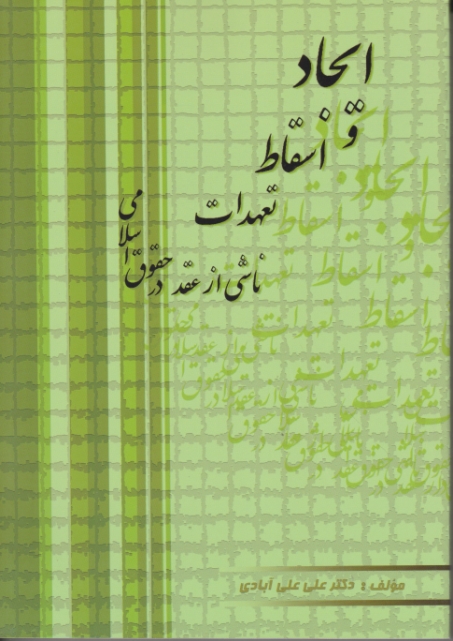 ایجاد
و
اسقاط
تعهدات
ناشی از عقد در حقوق اسلامی
مؤلف : دکتر علی علی آبادی